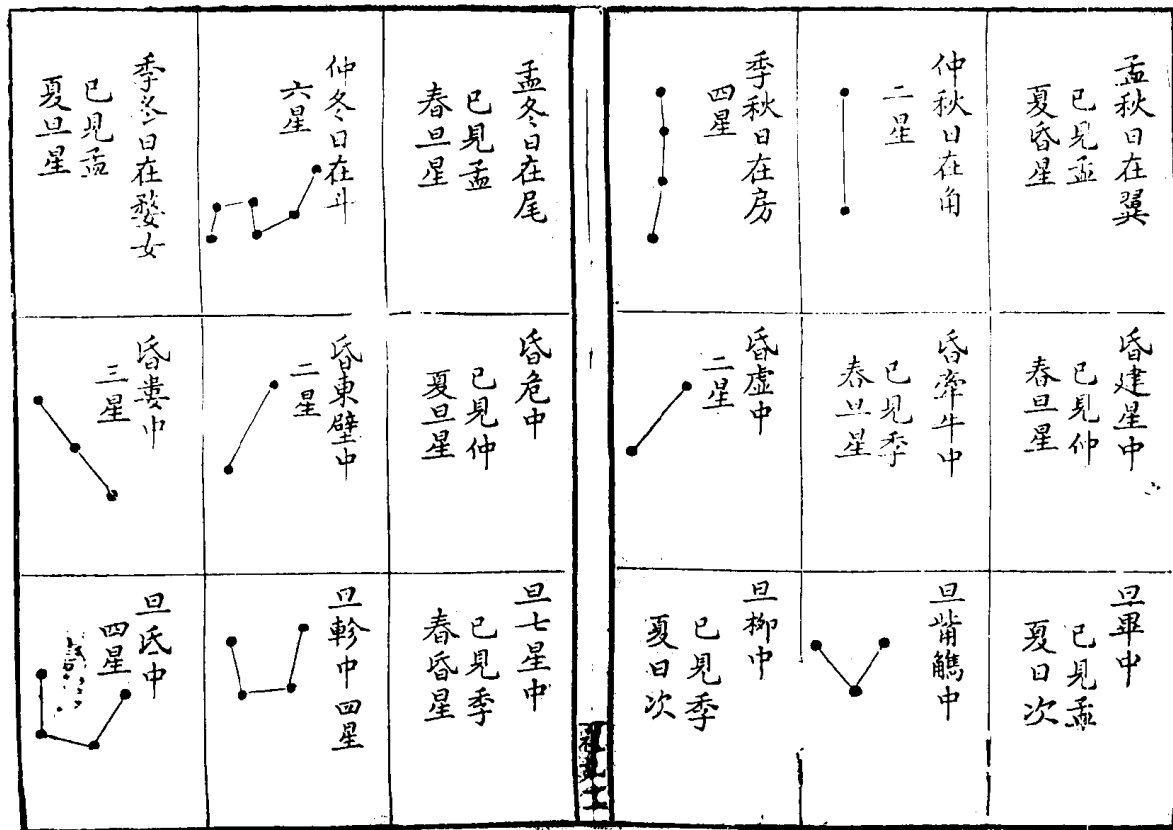 孟秋日在翼
已見孟
夏昏星
昏建星中
已見仲
春旦星
旦畢中
已見孟
夏日次
仲秋日在角
二星
昏牽牛中
已見季
春旦星
旦觜觿中
季秋日在房
四星
昏虛中
二星
旦柳中
已見季
夏日次
孟冬日在尾
已見孟
春旦星
昏危中
已見仲
夏旦星
旦七星中
已見季
春昏星
仲冬日在斗
六星
昏東壁中
二星
旦軫中 四星
季冬日在婺女
已見孟
夏旦星
昏婁中
三星
旦氐中
四星